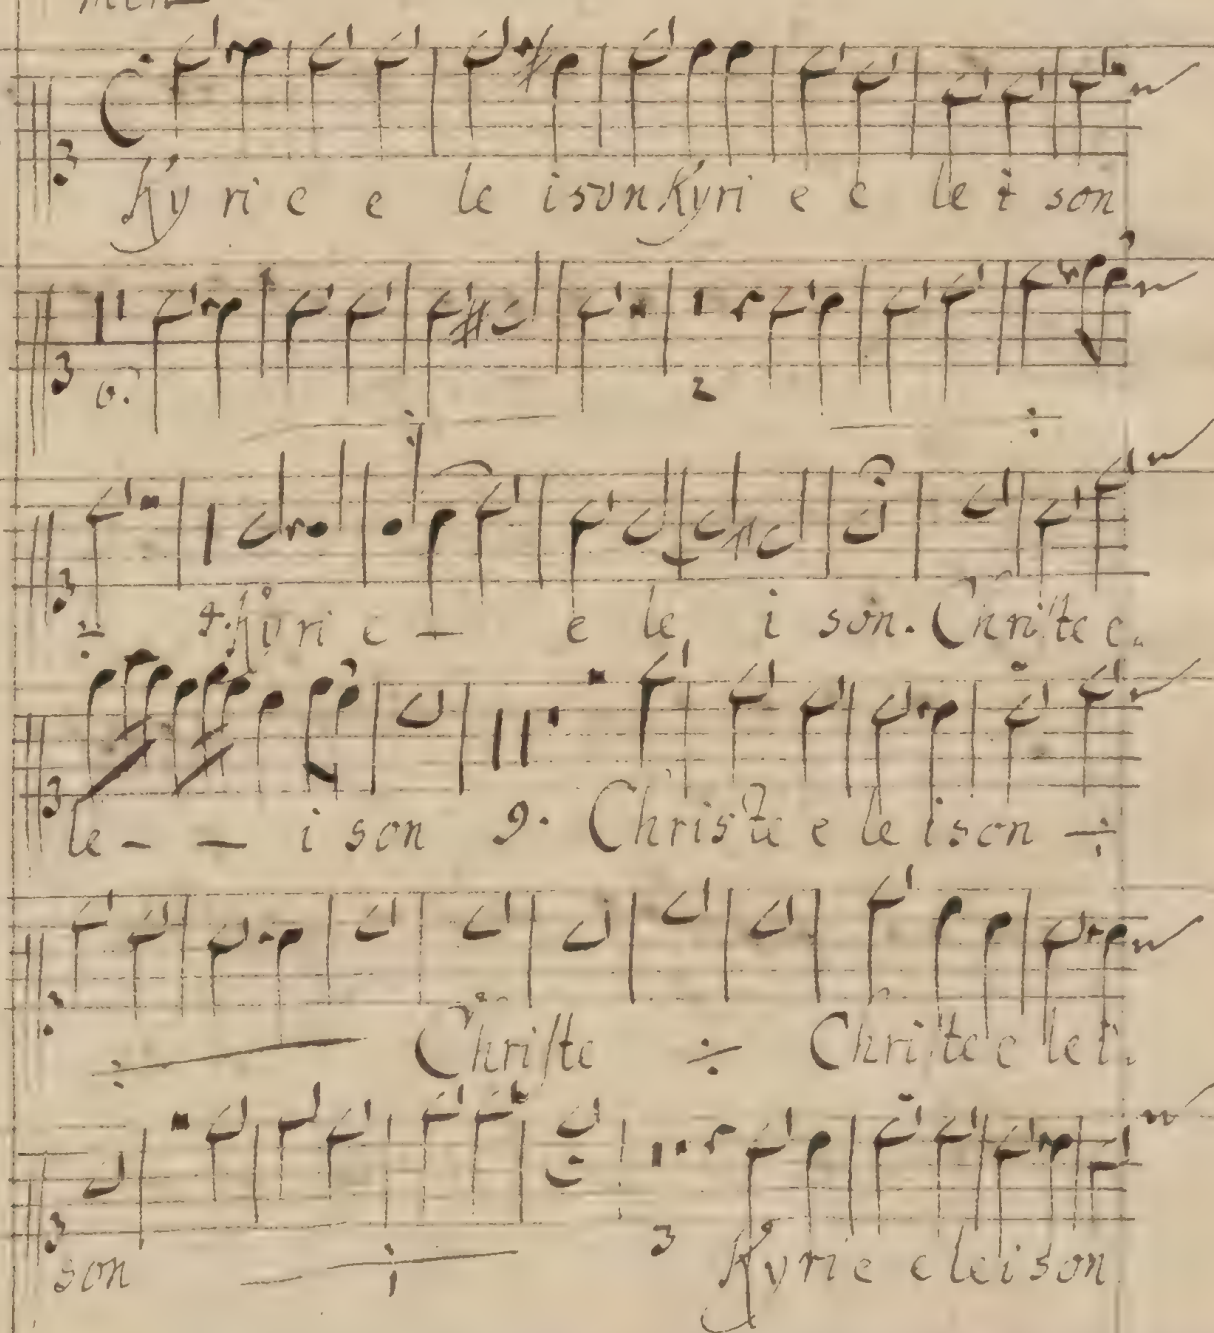 men
Ky ri e e le ison Kyri e e le i son
6. 2
4. Kyri e - e le i son. Christe e
le - - i son 9. Christe e leison
Christe Christe e lei
son 3 Kyrie eleison